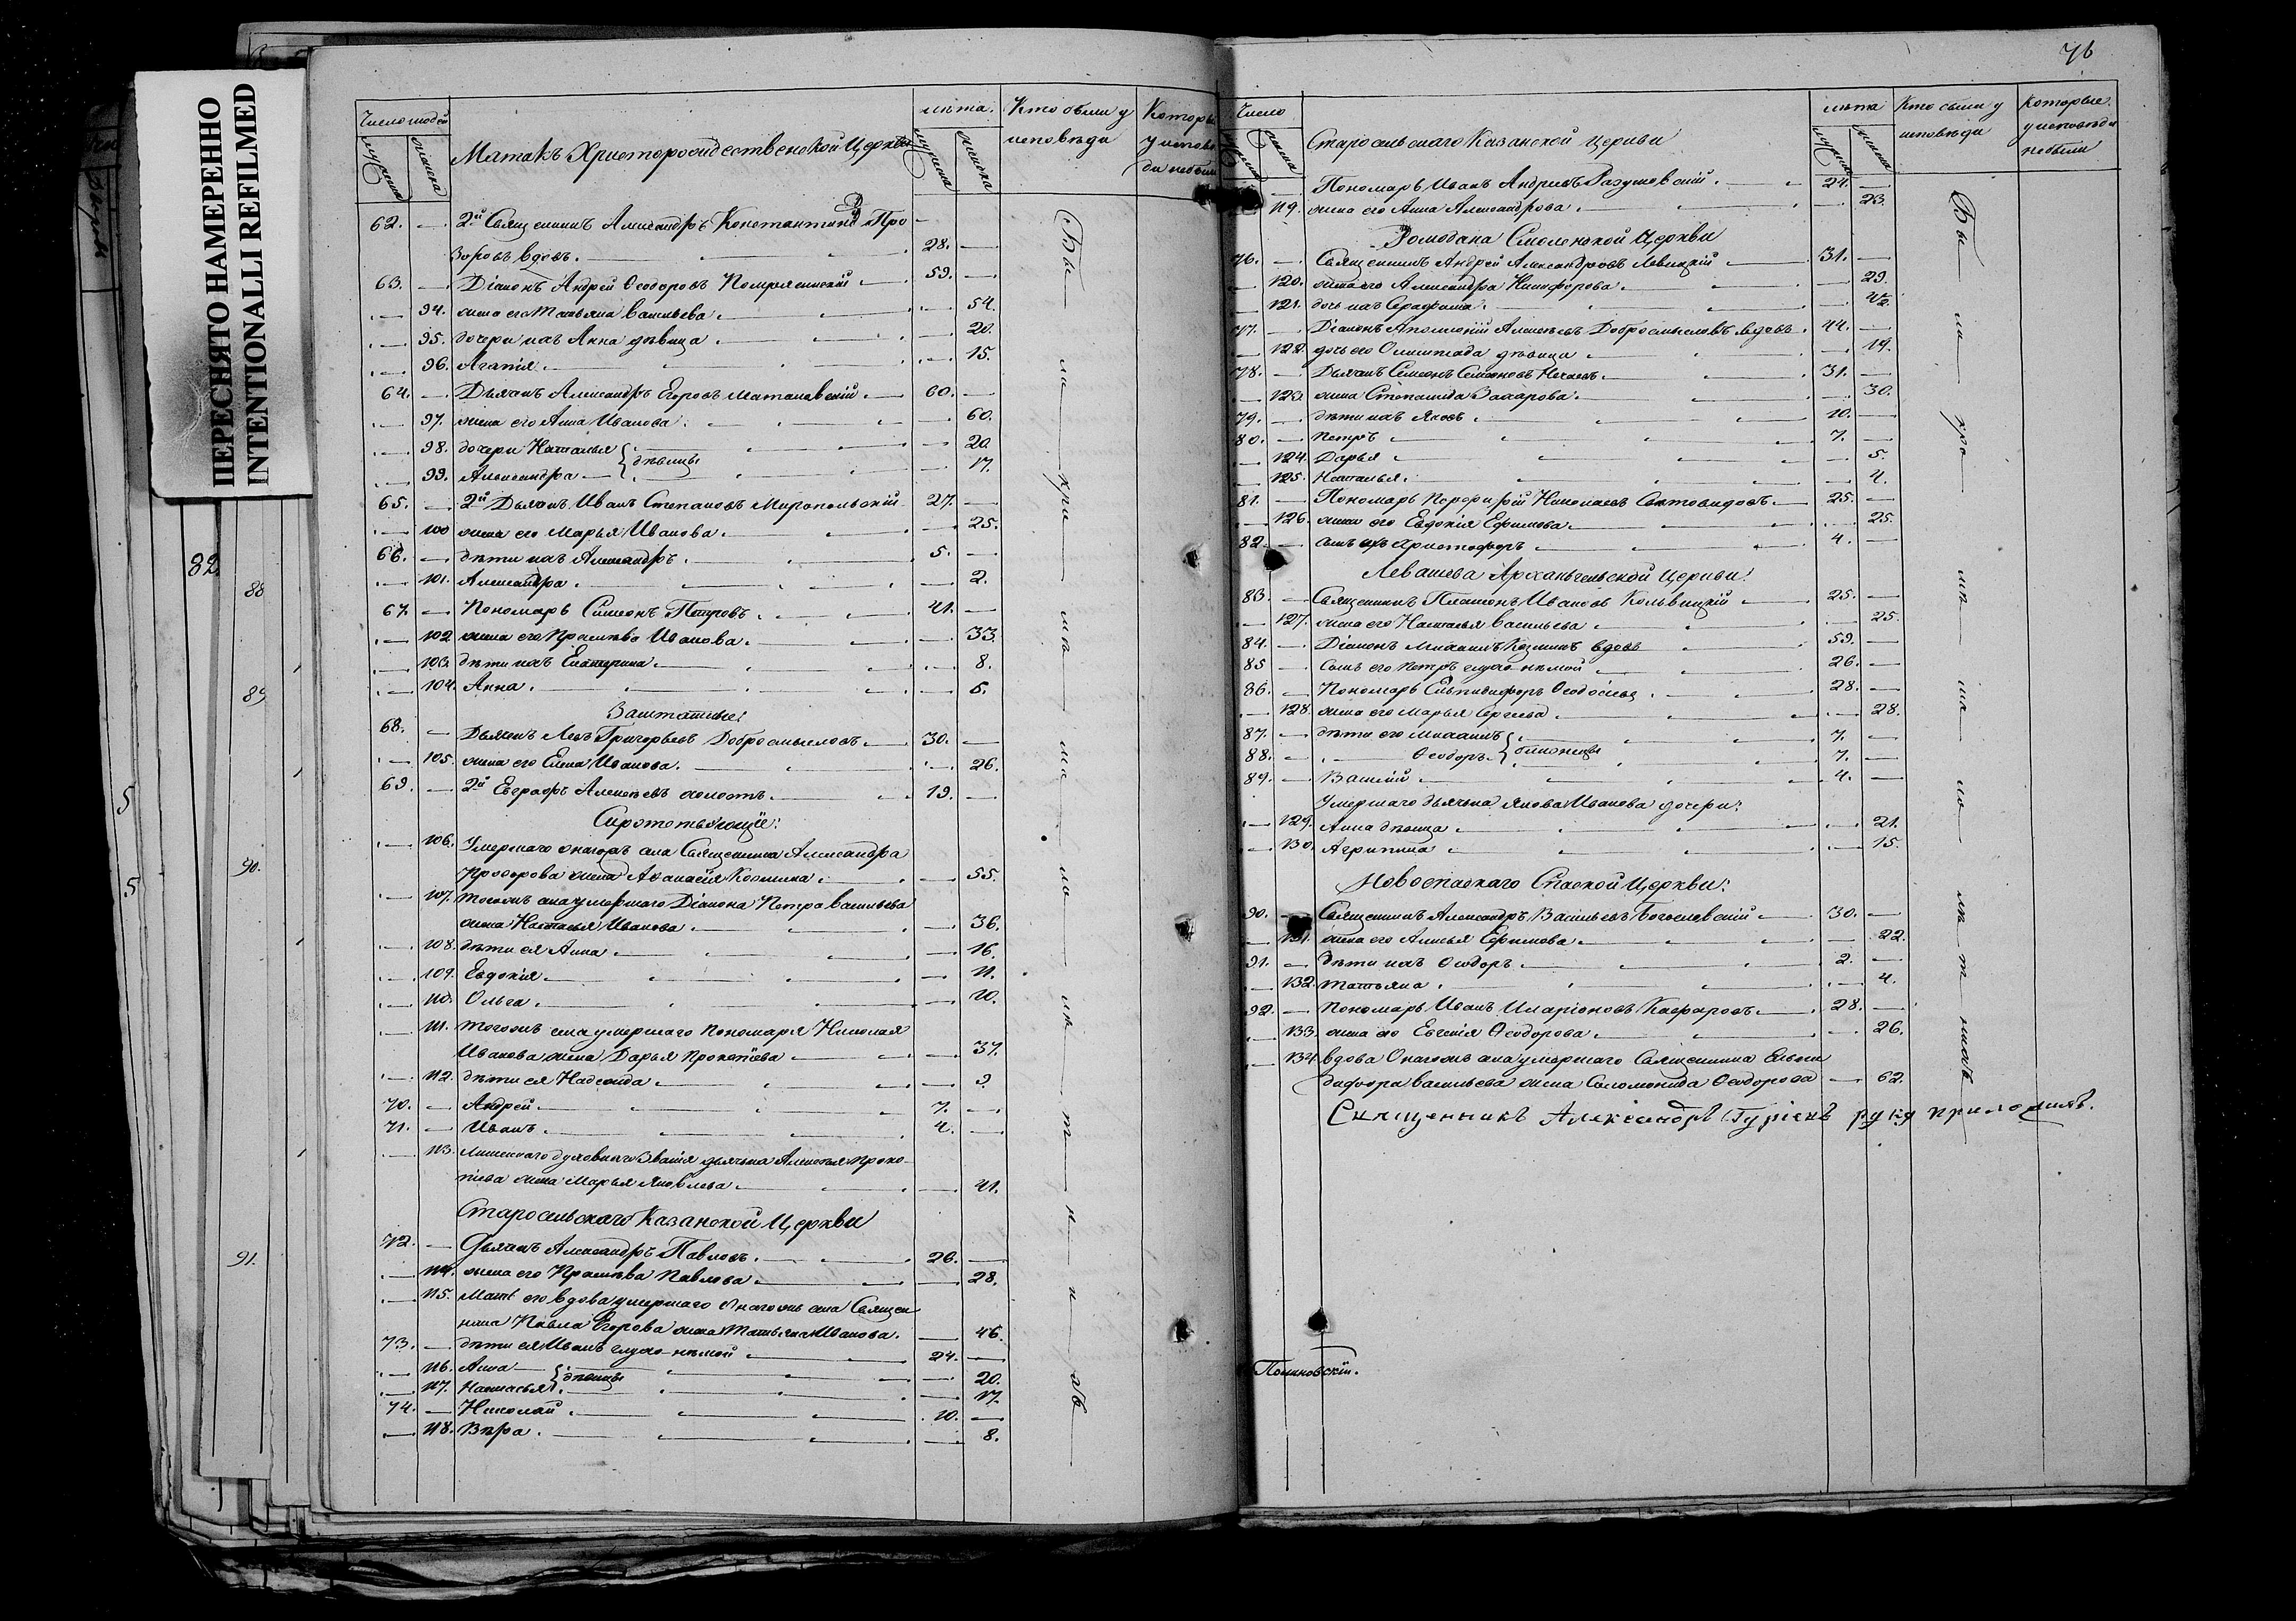 ПЕРЕСНЯТО НАМЕРЕННО
INTENTIONALLI REFILMED
82
88
89
90.
91.
5
5
Число людей
мужеска
женска
Матакъ Христорождественской Церкви
лѣта.
мужска
женска
Кто были у исповѣди
Которые у исповѣди небыли
62. — 2й Священникъ Александръ Константиновъ Про
зоровъ вдовъ. 28. —
63. — Діаконъ Андрей Ѳеодоровъ 59. —
— 94. жена его Татьяна Васильева 54.
— 95. дочери ихъ Анна дѣвица 20.
— 96. Агапія 15.
64. — Дьячекъ Александръ Егоровъ Матаковскій 60. —
— 97. жена его Анна Иванова 60.
— 98. дочери Наталья } дѣвицы 20
— 99. Александра 17.
65. — 2й Дьячекъ Иванъ Степановъ Миропольскій 27. —
— 100 жена его Марья Иванова 25.
66. — дѣти ихъ Александръ 5. —
— 101. Александра 2.
67. — Пономарь Симеонъ Петровъ 41. —
— 102 жена его Прасковья Иванова 33.
— 103. дѣти ихъ Екатерина 8.
— 104. Анна 5.
Заштатные:
68. — Дьячекъ Левъ Григорьевъ Добросмысловъ 30. —
— 105. жена его Елена Иванова 26.
69. — 2й Евграфъ Алексѣевъ холостъ 19. —
Сиротствующіе:
— 106. Умершаго онагожъ села Священника Александра
Прозорова жена Аѳанасія Козмина 55.
— 107. тогожъ села умершаго Діакона Петра Васильева
жена Настасья Иванова 36.
— 108. дѣти ея Анна 16.
— 109. Евдокія 11.
— 110. Ольга 10.
— 111. тогожъ села умершаго пономаря Николая
Иванова жена Дарья Прокопіева 37.
— 112. дѣти ея Надежда 9.
70. — Андрей 7. —
71. — Иванъ 4. —
— 113. Лишеннаго духовнаго званія дьячка Алексѣя Проко
піева жена Марья Яковлева 41.
Старосельскаго Казанской Церкви
72. — Дьячекъ Александръ Павловъ 26. —
— 114. жена его Прасковья Павлова 28.
— 115. Мать его вдова умершаго онагожъ села Священ
ника Павла Егорова жена Татьяна Иванова. 46.
73. — дѣти ея Иванъ глухо-нѣмой 24. —
— 116. Анна } дѣвицы 20.
— 117. Настасья 17.
74. — Николай 10. —
— 118. Вѣра 8.
76
Число
Старосельскаго Казанской Церкви
лѣта
Кто были у исповѣди
Которые у исповѣди небыли
— Пономарь Иванъ Андреевъ Разумовскій 24. —
119. жена его Анна Александрова 23.
Ромодана Смоленской Церкви
76. — Священникъ Андрей Александровъ Левицкій 31. —
— 120. жена его Александра Никифорова 29.
— 121. дочь ихъ Серафима 1/2
77. — Діаконъ Аполлоній Алексѣевъ Добросмысловъ вдовъ 44. —
— 122. дочь его Олимпіада дѣвица 19.
78. — Дьячекъ Семенъ Семеновъ Нечаевъ 31. —
— 123. жена Степанида Захарова 30.
79. — дѣти ихъ Яковъ 10. —
80. — Петръ 7. —
— 124. Дарья 5.
— 125. Наталья 4.
81. — Пономарь Порфирій Николаевъ 25. —
— 126. жена его Евдокія Ефимова 25.
82. — сынъ ихъ Христофоръ 4. —
Левашева Архангельской Церкви:
83. — Священникъ Платонъ Ивановъ 25. —
— 127. жена его Настасья Васильева 25.
84. — Діаконъ Михаилъ Козминъ вдовъ 59. —
85 — Сынъ его Петръ глухо-нѣмой 26. —
86. — Пономарь Елпидифоръ Ѳеодосіевъ 28. —
— 128. жена его Марья Сергеева 28.
87. — дѣти его Михаилъ } близнецы 7. —
88. — Ѳеодоръ 7. —
89. — Василій 4. —
Умершаго дьячка Якова Иванова дочери:
— 129. Анна дѣвица 21.
— 130. Агрипина 15.
Новоспаскаго Спаской Церкви:
90. — Священникъ Александръ Васильевъ Богословскій 30. —
— 131. жена его Ефимова 22.
91. — дѣти ихъ Ѳеодоръ 2. —
— 132. Татьяна 4.
92. — Пономарь Иванъ Иларіоновъ Кафаровъ 28. —
— 133. жена его Евгенія Ѳеодорова 26.
— 134. вдова Онагожъ села умершаго Священника Елпи
дифора Васильева жена Соломонида Ѳеодорова 62.
Священникъ Александръ Гурьевъ руку приложилъ.